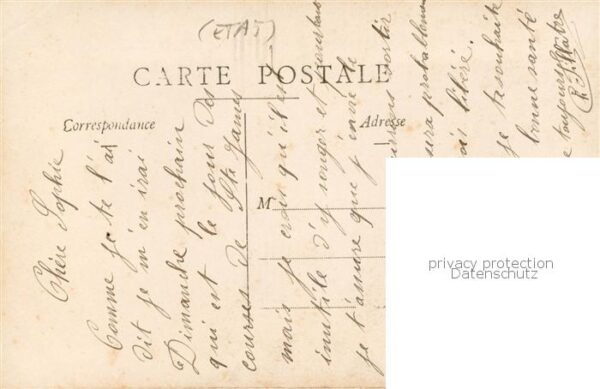 (ETAT)
CARTE POSTALE
Correspondance
Adresse
M
Chère Sophie
Comme je te l'ai
dit je m'en irai
Dimanche prochain
qui est le jour des
courses de
mais je crois qu'il est
inutile d'y songer et pourtant
je t'assure que j'
sortir
sera probablement
libéré.
je te souhaite
bonne santé
toujours
privacy protection
Datenschutz